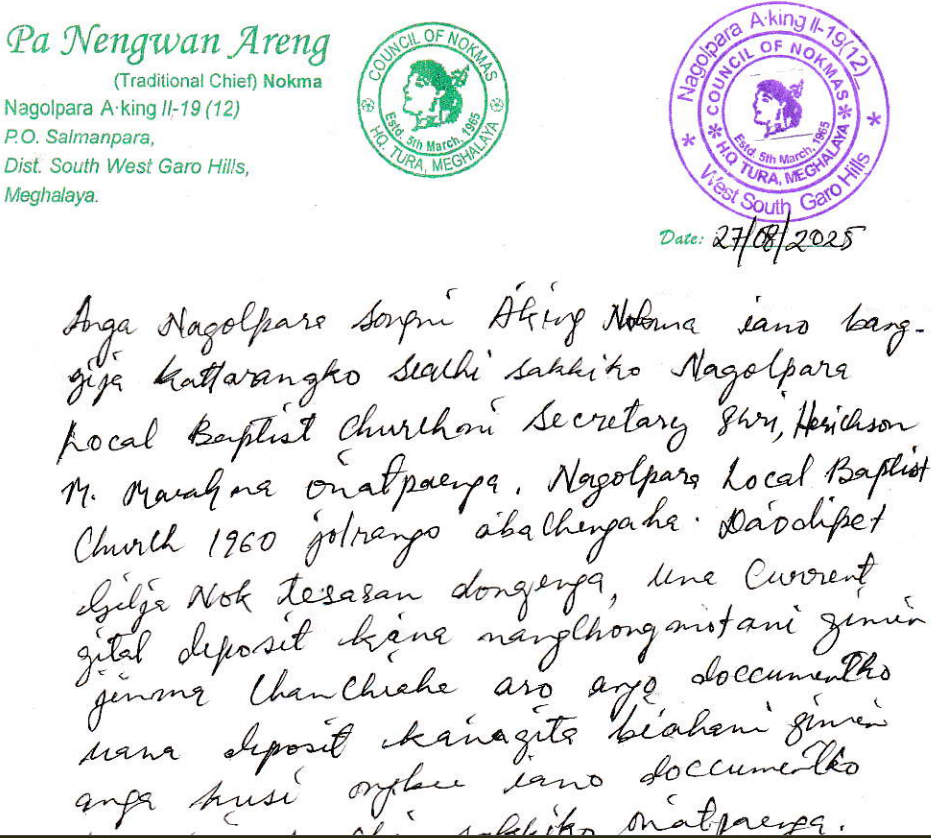 Pa Nengwan Areng
(Traditional Chief) Nokma
Nagolpara A·king II-19 (12)
P.O. Salmanpara,
Dist. South West Garo Hills,
Meghalaya.
COUNCIL OF NOKMAS
Estd. 5th March, 1965
HQ. TURA, MEGHALAYA
Nagolpara A·king II-19(12)
COUNCIL OF NOKMAS
Estd. 5th March, 1965
H.Q. TURA, MEGHALAYA
West South Garo Hills
Date: 27/08/2025
Anga Nagolpara songni A·king Nokma iano bang-
gija kattarangko seathi sakkiko Nagolpara
Local Baptist Churchoni Secretary Shri, Herickson
M. Marakna onatpaenga. Nagolpara Local Baptist
Church 1960 jolrango abachengaha. Da·odipet
Nok tesasan dongenga, una Current
deposit ka·na nangchongmotani gimin
jinma chanchiaha aro doccumentko
uana deposit ka·nagita bi·ahani gimin
anga kusi ong·e iano doccumentko
sakkiko onatpaenga.